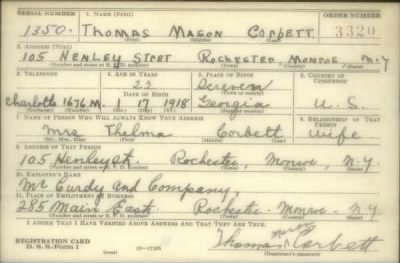 SERIAL NUMBER 1. NAME (Print) ORDER NUMBER
1350. THOMAS MASON CORBETT 3320
(First) (Middle) (Last)
2. ADDRESS (Print)
105 HENLEY STRET ROCHESTER, MONROE N.Y
(Number and street or R. F. D. number) (Town) (County) (State)
3. TELEPHONE 4. AGE IN YEARS 5. PLACE OF BIRTH 6. COUNTRY OF CITIZENSHIP
22 Screven
DATE OF BIRTH (Town or county)
Charlotte 1676 M. 1 17 1918 Georgia U. S.
(Exchange) (Number) (Mo.) (Day) (Yr.) (State or country)
7. NAME OF PERSON WHO WILL ALWAYS KNOW YOUR ADDRESS 8. RELATIONSHIP OF THAT PERSON
Mrs Thelma Corbett Wife
(Mr., Mrs., Miss) (First) (Middle) (Last)
9. ADDRESS OF THAT PERSON
105 Henley St. Rochester, Monroe, N.Y.
(Number and street or R. F. D. number) (Town) (County) (State)
10. EMPLOYER'S NAME
Mc Curdy and Company,
11. PLACE OF EMPLOYMENT OR BUSINESS
285 Main East Rochester - Monroe - N.Y
(Number and street or R. F. D. number) (Town) (County) (State)
I AFFIRM THAT I HAVE VERIFIED ABOVE ANSWERS AND THAT THEY ARE TRUE.
REGISTRATION CARD
D. S. S. Form 1 (over)
Thomas Mason Corbett
(Registrant's signature)